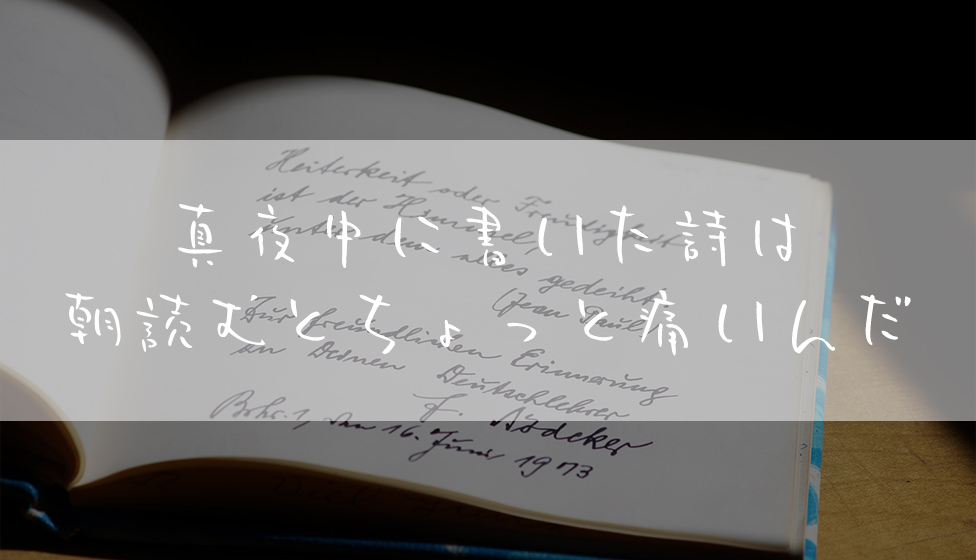 Heiterkeit oder Freudigkeit
ist der Himmel,
unter dem alles gedeiht.
(Jean Paul)
真夜中に書いた詩は
朝読むとちょっと痛いんだ
Zur freundlichen Erinnerung
an Deinen Deutschlehrer
F.
den 16. Juni 1973